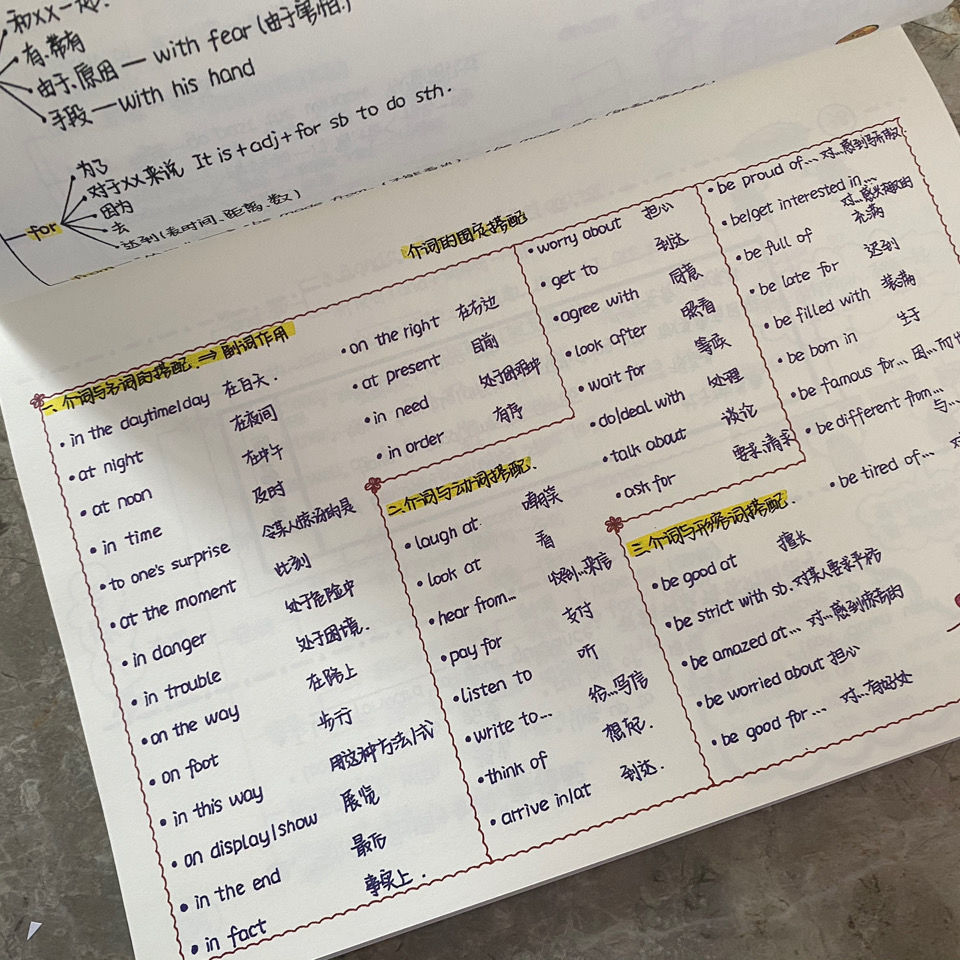 和XX一起.
有、带有
由于、原因 — with fear (由于害怕.)
手段 — with his hand
for
为了
对于XX来说 It is + adj + for sb to do sth.
因为
去
达到(表时间、距离、数)
介词的固定搭配
一、介词与名词的搭配 ⇒ 副词作用
• in the daytime/day 在白天.
• at night 在夜间
• at noon 在中午
• in time 及时
• to one's surprise 令某人惊讶的是
• at the moment 此刻
• in danger 处于危险中
• in trouble 处于困境.
• on the way 在路上
• on foot 步行
• in this way 用这种方法/式
• on display/show 展览
• in the end 最后
• in fact 事实上.
• on the right 在右边
• at present 目前
• in need 处于困难中
• in order 有序
二、介词与动词搭配.
• laugh at 嘲笑
• look at 看
• hear from... 收到...来信
• pay for 支付
• listen to 听
• write to... 给...写信
• think of 想起.
• arrive in/at 到达.
• worry about 担心
• get to 到达
• agree with 同意
• look after 照看
• wait for 等候
• do/deal with 处理
• talk about 谈论
• ask for 要求、请求
三、介词与形容词搭配.
• be good at 擅长
• be strict with sb. 对某人要求严格
• be amazed at... 对...感到惊奇的
• be worried about 担心
• be good for... 对...有好处
• be proud of... 对...感到骄傲
• be/get interested in... 对...感兴趣的
• be full of 充满
• be late for 迟到
• be filled with 装满
• be born in 生于
• be famous for... 因...而
• be different from... 与...
• be tired of... 对